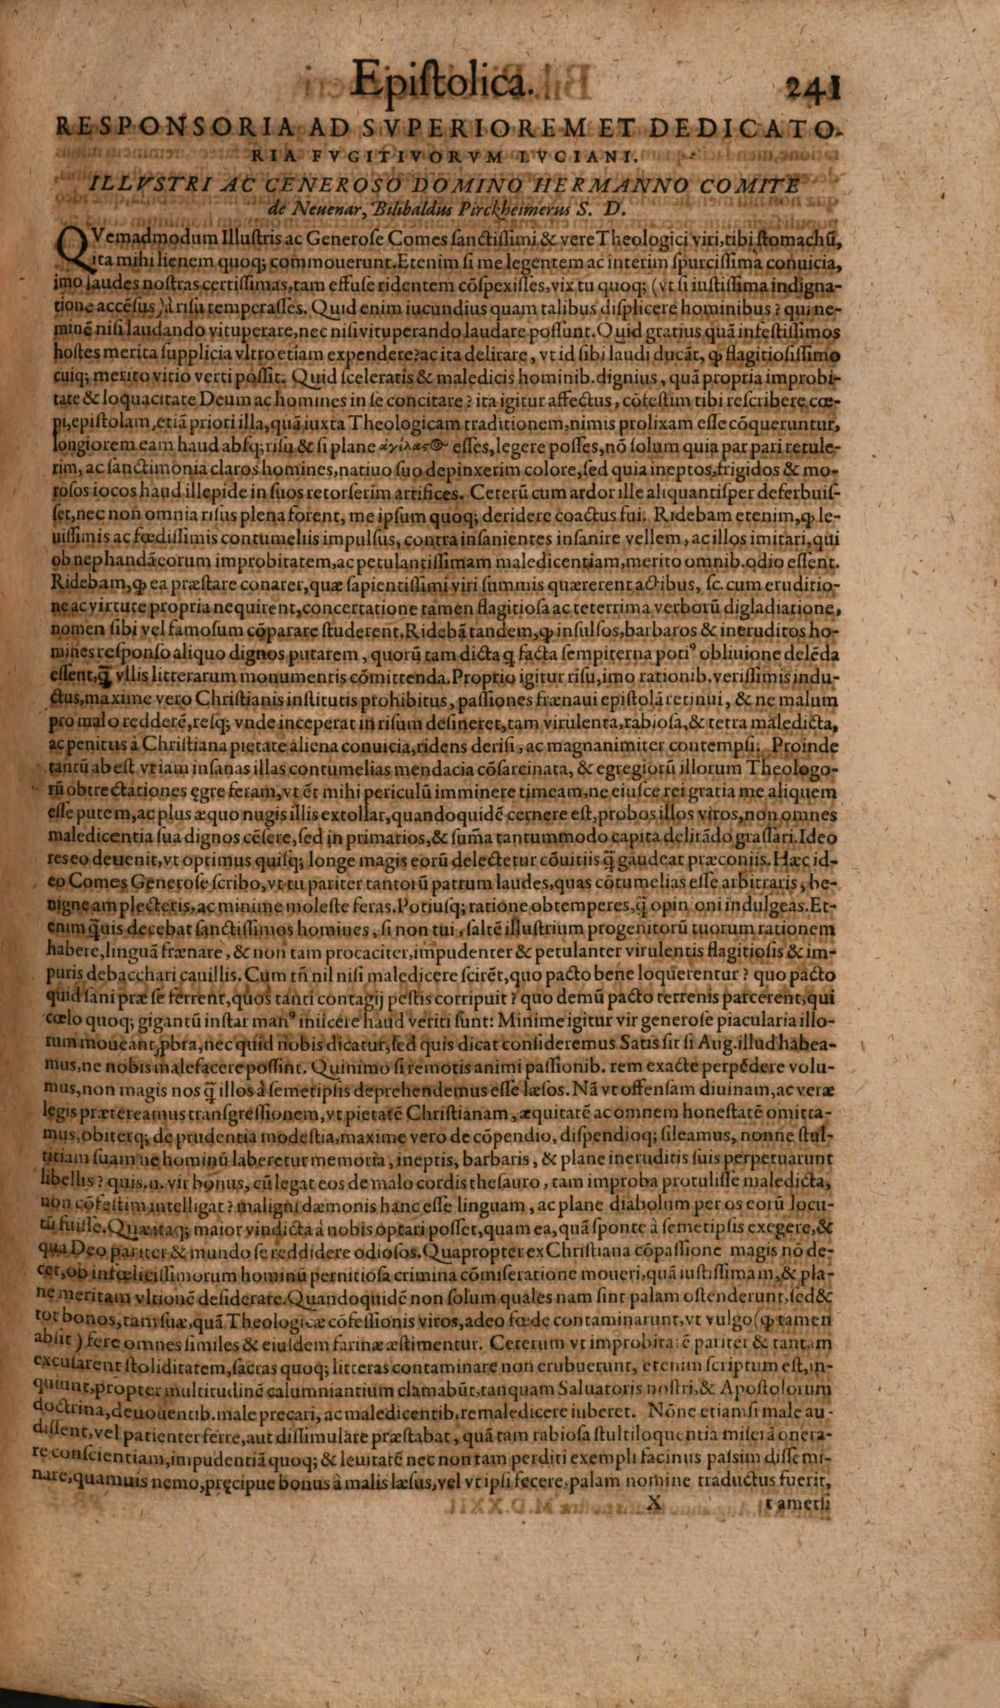 Epiſtolica.
241
RESPONSORIA AD SVPERIOREM ET DEDICATO-
RIA FVGITIVORVM LVCIANI.
ILLVSTRI AC GENEROSO DOMINO HERMANNO COMITE
de Neuenar, Bilibaldus Pirckheimerus S. D.
QVemadmodum Illuſtris ac Generoſe Comes ſanctiſſimi & vere Theologici viri, tibi ſtomachū,
ita mihi lienem quoq; commouerunt. Etenim ſi me legentem ac interim ſpurciſſima conuicia,
imo laudes noſtras certiſſimas, tam effuſe ridentem cōſpexiſſes, vix tu quoq; (vt ſi iuſtiſſima indigna-
tione accēſus) à riſu temperaſſes. Quid enim iucundius quam talibus diſplicere hominibus? qui ne-
minē niſi laudando vituperare, nec niſi vituperando laudare poſſunt. Quid gratius quā infeſtiſſimos
hoſtes merita ſupplicia vltro etiam expendere? ac ita delirare, vt id ſibi laudi ducāt, ꝙ flagitioſiſſimo
cuiq; merito vitio verti poſſit. Quid ſceleratis & maledicis hominib. dignius, quā propria improbi-
tate & loquacitate Deum ac homines in ſe concitare? ita igitur affectus, cōfeſtim tibi reſcribere cœ-
pi, epiſtolam, etiā priori illa, quā iuxta Theologicam traditionem, nimis prolixam eſſe cōqueruntur,
longiorem eam haud abſq; riſu & ſi plane eſſes, legere poſſes, nō ſolum quia par pari retule-
rim, ac ſanctimonia claros homines, natiuo ſuo depinxerim colore, ſed quia ineptos, frigidos & mo-
roſos iocos haud illepide in ſuos retorſerim artifices. Ceterū cum ardor ille aliquantiſper deferbuiſ-
ſet, nec non omnia riſus plena forent, me ipſum quoq; deridere coactus fui. Ridebam etenim, ꝙ le-
uiſſimis ac fœdiſſimis contumeliis impulſus, contra inſanientes inſanire vellem, ac illos imitari, qui
ob nephandācorum improbitatem, ac petulantiſſimam maledicentiam, merito omnib. odio eſſent.
Ridebam, ꝙ ea præſtare conarer, quæ ſapientiſſimi viri ſummis quærerent actibus, ſc. cum eruditio-
ne ac virtute propria nequirent, concertatione tamen flagitioſa ac teterrima verborū digladiatione,
nomen ſibi vel famoſum cōparare ſtuderent. Ridebā tandem, ꝙ inſulſos, barbaros & ineruditos ho-
mines reſponſo aliquo dignos putarem, quorū tam dicta q̄ facta ſempiterna poti⁹ obliuione delēda
eſſent, q̄ vllis litterarum monumentis cōmittenda. Proprio igitur riſu, imo rationib. veriſſimis indu-
ctus, maxime vero Chriſtianis inſtitutis prohibitus, paſſiones frænaui epiſtolā retinui, & ne malum
pro malo redderē, reſq; vnde inceperat in riſum deſineret, tam virulenta, rabioſa, & tetra maledicta,
ac penitus à Chriſtiana pietate aliena conuicia, ridens deriſi, ac magnanimiter contempſi. Proinde
tantū abeſt vt iam inſanas illas contumelias mendacia cōſarcinata, & egregiorū illorum Theologo-
rū obtrectationes ęgre feram, vt ēt mihi periculū imminere timeam, ne eiuſce rei gratia me aliquem
eſſe putem, ac plus æquo nugis illis extollar, quandoquidē cernere eſt, probos illos viros, non omnes
maledicentia ſua dignos cēſere, ſed in primatios, & ſum̄a tantummodo capita delirādo graſſari. Ideo
res eo deuenit, vt optimus quiſq; longe magis eorū delectetur cōuitiis q̄ gaudeat præconiis. Hæc id-
eo Comes Generoſe ſcribo, vt tu pariter tantorū patrum laudes, quas cōtumelias eſſe arbitraris, be-
nigne amplecteris, ac minime moleſte feras. Potiuſq; ratione obtemperes, q̄ opinioni indulgeas. Et-
enim q̄uis decebat ſanctiſſimos homines, ſi non tui, ſaltē illuſtrium progenitorū tuorum rationem
habere, linguā frænare, & non tam procaciter, impudenter & petulanter virulentis flagitioſis & im-
puris debacchari cauillis. Cum tn̄ nil niſi maledicere ſcirēt, quo pacto bene loquerentur? quo pacto
quid ſani præ ſe ferrent, quos tanti contagij peſtis corripuit? quo demū pacto terrenis parcerent, qui
cœlo quoq; gigantū inſtar man⁹ iniicere haud veriti ſunt: Minime igitur vir generoſe piacularia illo-
rum moueant, pbra, nec quid nobis dicatur, ſed quis dicat conſideremus Satis ſit ſi Aug. illud habea-
mus, ne nobis malefacere poſſint. Quinimo ſi remotis animi paſſionib. rem exacte perpēdere volu-
mus, non magis nos q̄ illos à ſemetipſis deprehendemus eſſe læſos. Nā vt offenſam diuinam, ac veræ
legis prætereamus tranſgreſſionem, vt pietatē Chriſtianam, æquitatē ac omnem honeſtatē omitta-
mus, obiterq; de prudentia modeſtia, maxime vero de cōpendio, diſpendioq; ſileamus, nonne ſtul-
titiam ſuam ne hominū laberetur memoria, ineptis, barbaris, & plane ineruditis ſuis perpetuarunt
libellis? quis. n. vir bonus, cū legat eos de malo cordis theſauro, tam improba protuliſſe maledicta,
non cōfeſtim intelligat? maligni dæmonis hanc eſſe linguam, ac plane diabolum per os eorū locu-
tū fuiſſe. Quæ itaq; maior vindicta à nobis optari poſſet, quam ea, quā ſponte à ſemetipſis exegere, &
qua Deo pariter & mundo ſe reddidere odioſos. Quapropter ex Chriſtiana cōpaſſione magis nō de-
cet, ob infœliciſſimorum hominū pernitioſa crimina cōmiſeratione moueri, quā iuſtiſſimam, & pla-
ne meritam vltionē deſiderare. Quandoquidē non ſolum quales nam ſint palam oſtenderunt, ſed &
tot bonos, tam ſuæ, quā Theologicæ cōfeſſionis viros, adeo fœde contaminarunt, vt vulgo (ꝙ tamen
abſit) fere omnes ſimiles & eiuſdem farinæ æſtimentur. Ceterum vt improbitatē pariter & tantam
excuſarent ſtoliditatem, ſacras quoq; litteras contaminare non erubuerunt, etenim ſcriptum eſt, in-
quiunt, propter multitudinē calumniantium clamabūt, tanquam Saluatoris noſtri, & Apoſtolorum
doctrina, deuouentib. male precari, ac maledicentib. remaledicere iuberet. Nōne etiamſi male au-
diſſent, vel patienter ferre, aut diſſimulare præſtabat, quā tam rabioſa ſtultiloquentia miſerā onera-
re conſcientiam, impudentiā quoq; & leuitatē nec non tam perditi exempli facinus paſsim diſſemi-
nare, quamuis nemo, pręcipue bonus à malis læſus, vel vt ipſi fecere, palam nomine traductus fuerit,
X
tametſi